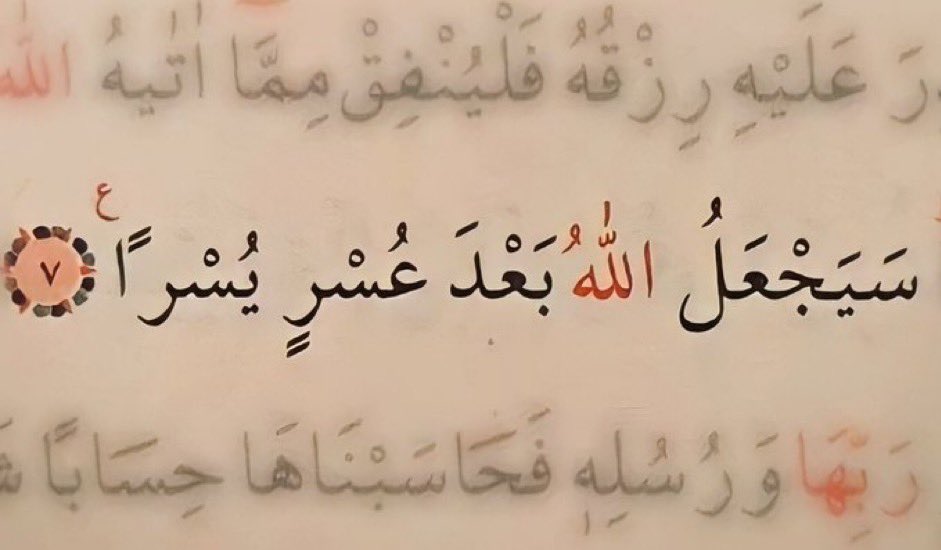 رَ عَلَيْهِ رِزْقُهُ فَلْيُنْفِقْ مِمَّٓا اٰتٰيهُ اللّٰهُ
سَيَجْعَلُ اللّٰهُ بَعْدَ عُسْرٍ يُسْرًا ع ٧
رَبِّهَا وَرُسُلِه۪ فَحَاسَبْنَاهَا حِسَابًا